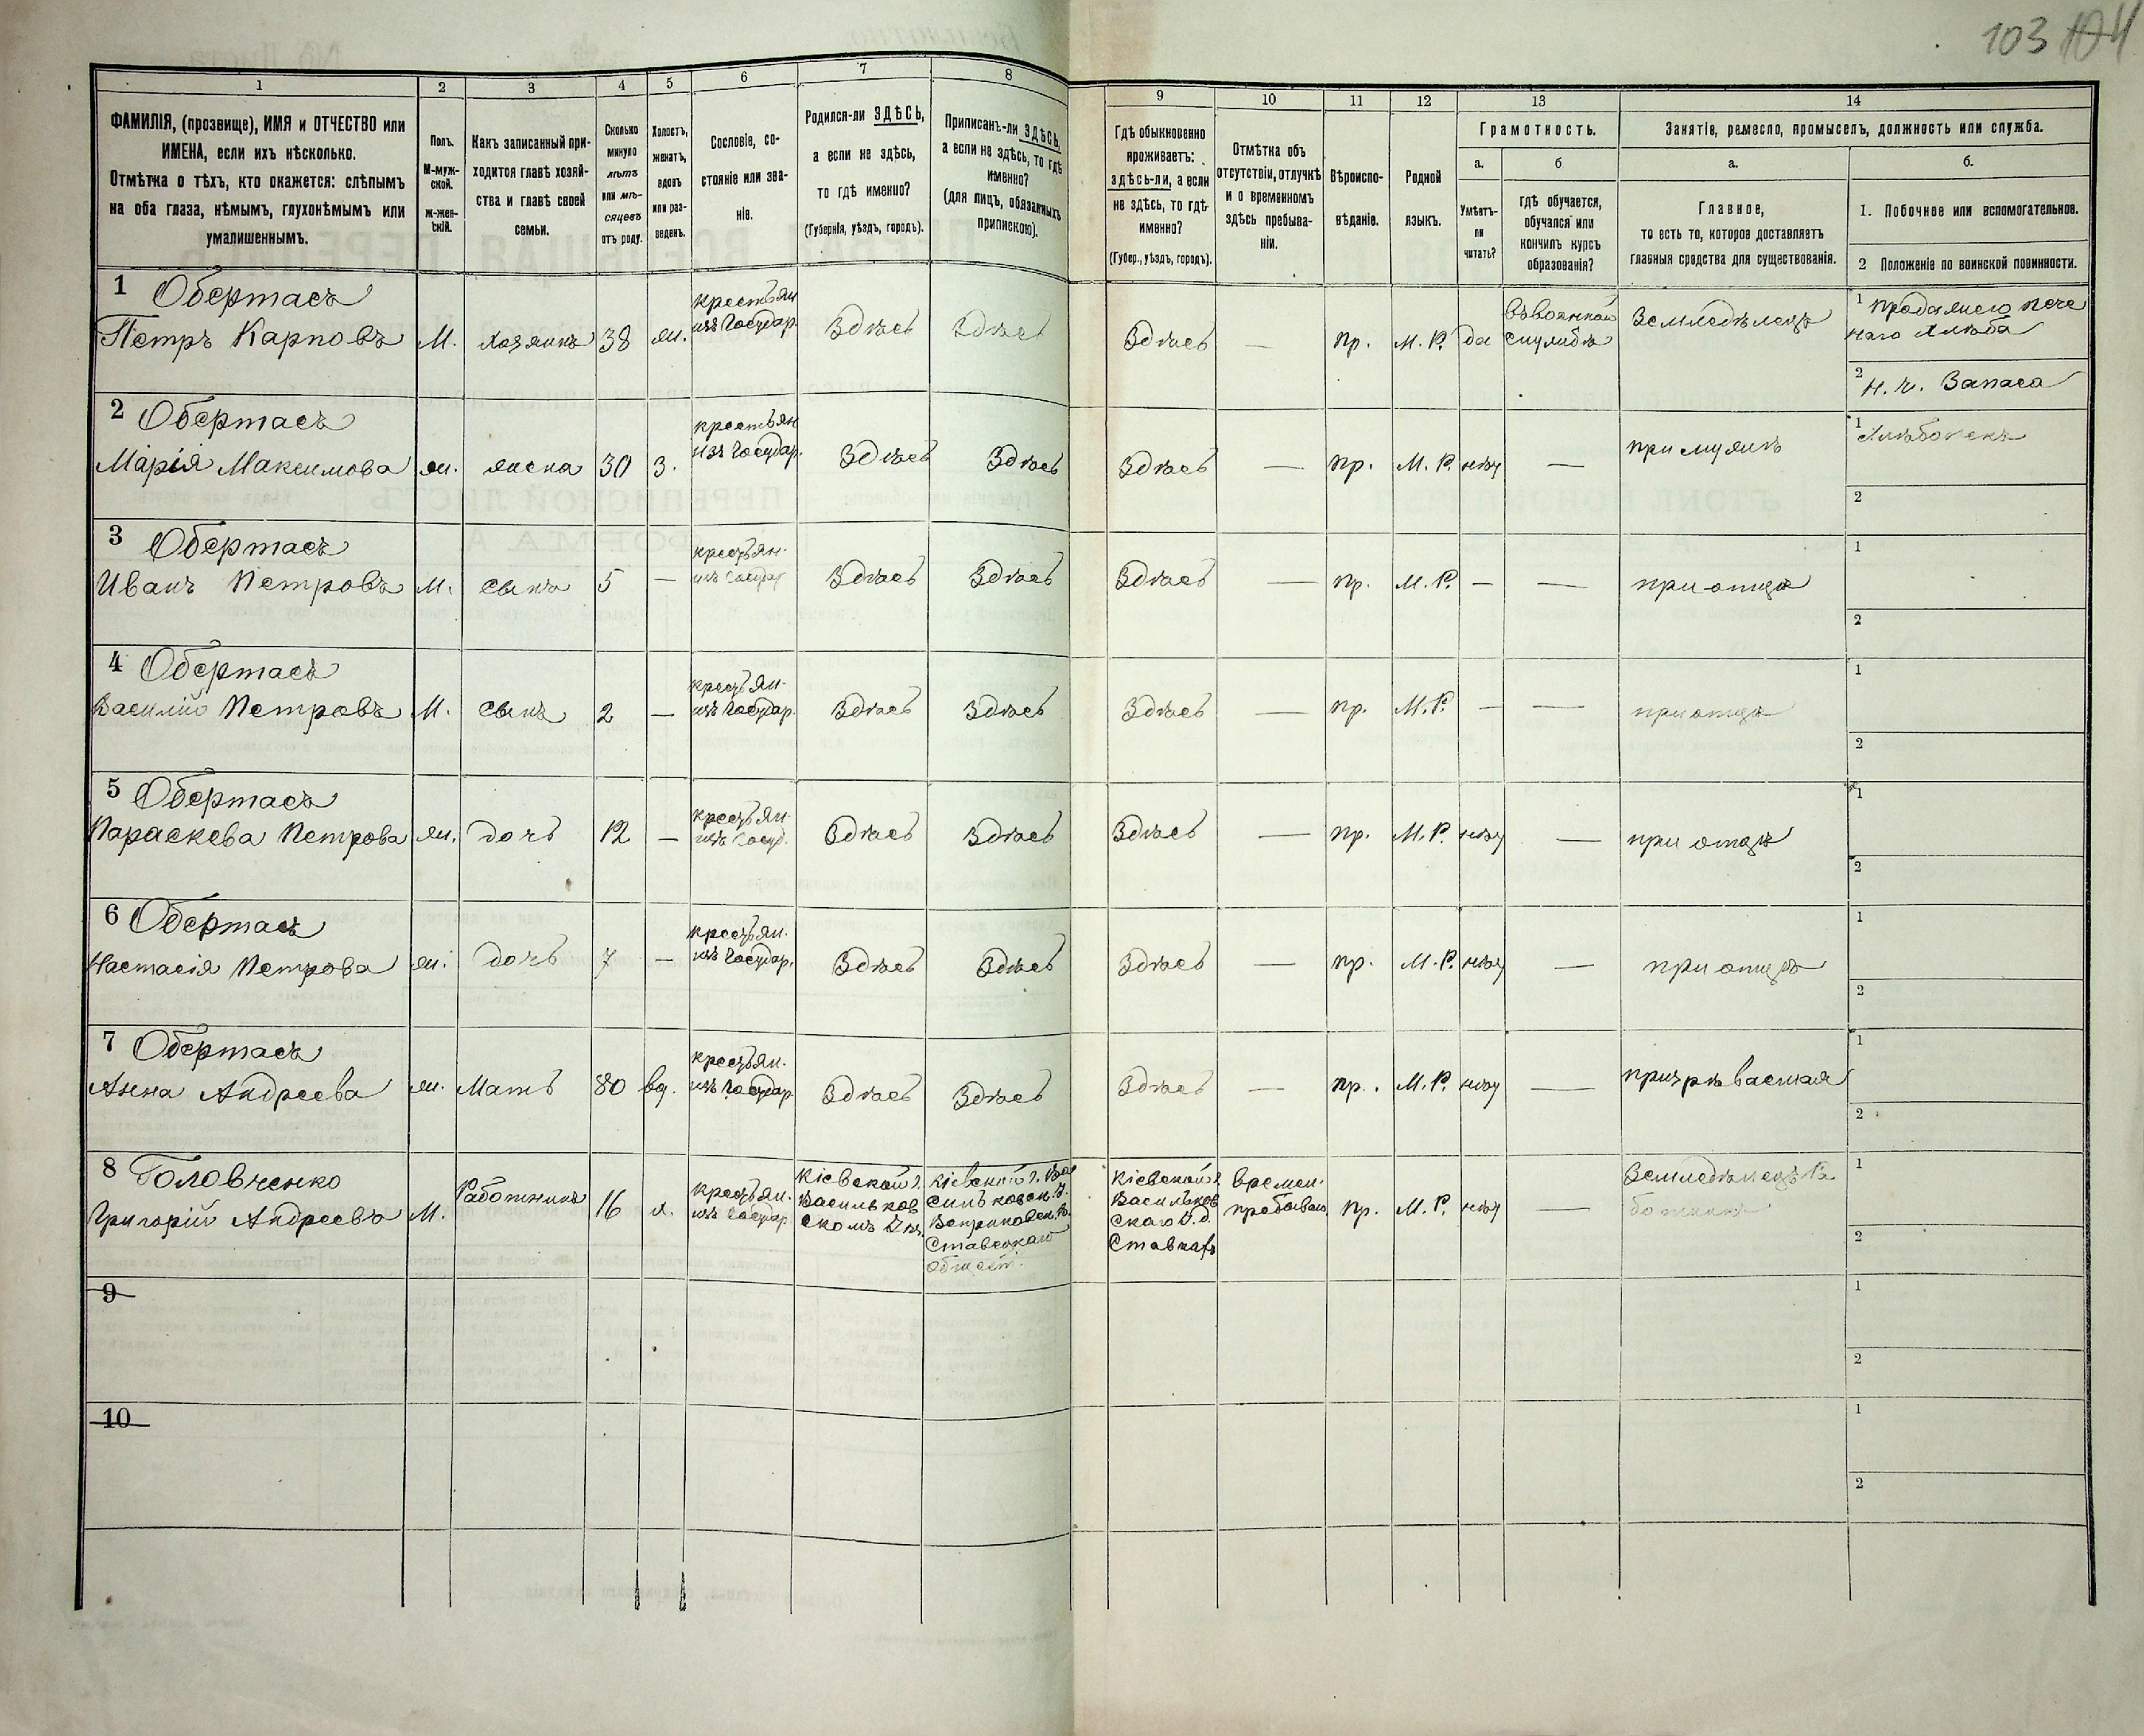 103 104
1 2 3 4 5 6 7 8 9 10 11 12 13 14
ФАМИЛІЯ, (прозвище), ИМЯ и ОТЧЕСТВО или
ИМЕНА, если ихъ нѣсколько.
Отмѣтка о тѣхъ, кто окажется: слѣпымъ
на оба глаза, нѣмымъ, глухонѣмымъ или
умалишеннымъ.
Полъ.
М-муж-
ской.
ж-жен-
скій.
Какъ записанный при-
ходится главѣ хозяй-
ства и главѣ своей
семьи.
Сколько
минуло
лѣтъ
или мѣ-
сяцевъ
отъ роду.
Холостъ,
женатъ,
вдовъ
или раз-
веденъ.
Сословіе, со-
стояніе или зва-
ніе.
Родился-ли ЗДѢСЬ,
а если не здѣсь,
то гдѣ именно?
(Губернія, уѣздъ, городъ).
Приписанъ-ли ЗДѢСЬ,
а если не здѣсь, то гдѣ
именно?
(для лицъ, обязанныхъ
припискою).
Гдѣ обыкновенно
проживаетъ:
здѣсь-ли, а если
не здѣсь, то гдѣ
именно?
(Губер., уѣздъ, городъ).
Отмѣтка объ
отсутствіи, отлучкѣ
и о временномъ
здѣсь пребыва-
ніи.
Вѣроиспо-
вѣданіе.
Родной
языкъ.
Грамотность.
а.
Умѣетъ-
ли
читать?
б
гдѣ обучается,
обучался или
кончилъ курсъ
образованія?
Занятіе, ремесло, промыселъ, должность или служба.
а.
Главное,
то есть то, которое доставляетъ
главныя средства для существованія.
б.
1. Побочное или вспомогательное.
2 Положеніе по воинской повинности.
1 Обертасъ
Петръ Карповъ М. хозяинъ 38 ж.
крестьян
изъ Государ.
Здѣсь Здѣсь Здѣсь — пр. М. Р. да
въ военной
службѣ
Земледѣлецъ
1 Продажею пече
наго хлѣба
2 н. ч. Запаса
2 Обертасъ
Марія Максимова ж. жена 30 з.
крестьян
изъ Государ.
Здѣсь Здѣсь Здѣсь — пр. М. Р. нѣт —
при мужѣ
1 Хлѣбопекъ
2
3 Обертасъ
Иванъ Петровъ М. сынъ 5 —
крестьян.
изъ Государ
Здѣсь Здѣсь Здѣсь — пр. М. Р. — — при отцѣ
1
2
4 Обертасъ
Василій Петровъ М. сынъ 2 —
крестьян.
изъ Государ.
Здѣсь Здѣсь Здѣсь — пр. М. Р. — — при отцѣ
1
2
5 Обертасъ
Параскева Петрова ж. дочь 12 —
крестьян.
изъ Госуд.
Здѣсь Здѣсь Здѣсь — пр. М. Р. нѣт — при отцѣ
1
2
6 Обертасъ
Настасія Петрова ж. дочь 7 —
крестьян.
изъ Государ.
Здѣсь Здѣсь Здѣсь — пр. М. Р. нѣт — при отцѣ
1
2
7 Обертасъ
Анна Андреева ж. Мать 80 вд.
крестьян.
изъ Государ
Здѣсь Здѣсь Здѣсь — пр. М. Р. нѣт — призрѣваемая
1
2
8 Головченко
Григорій Андреевъ М. Работникъ 16 х.
крестьян.
изъ Государ
Кіевской г.
Васильков
скомъ
Кіевской г. Ва
сильковск. у.
Ставскаго
общест.
Кіевской г.
Васильков
скаго
времен.
пребыван.
пр. М. Р. нѣт —
Земледѣлецъ Ра
ботникъ
1
2
9
1
2
10
1
2